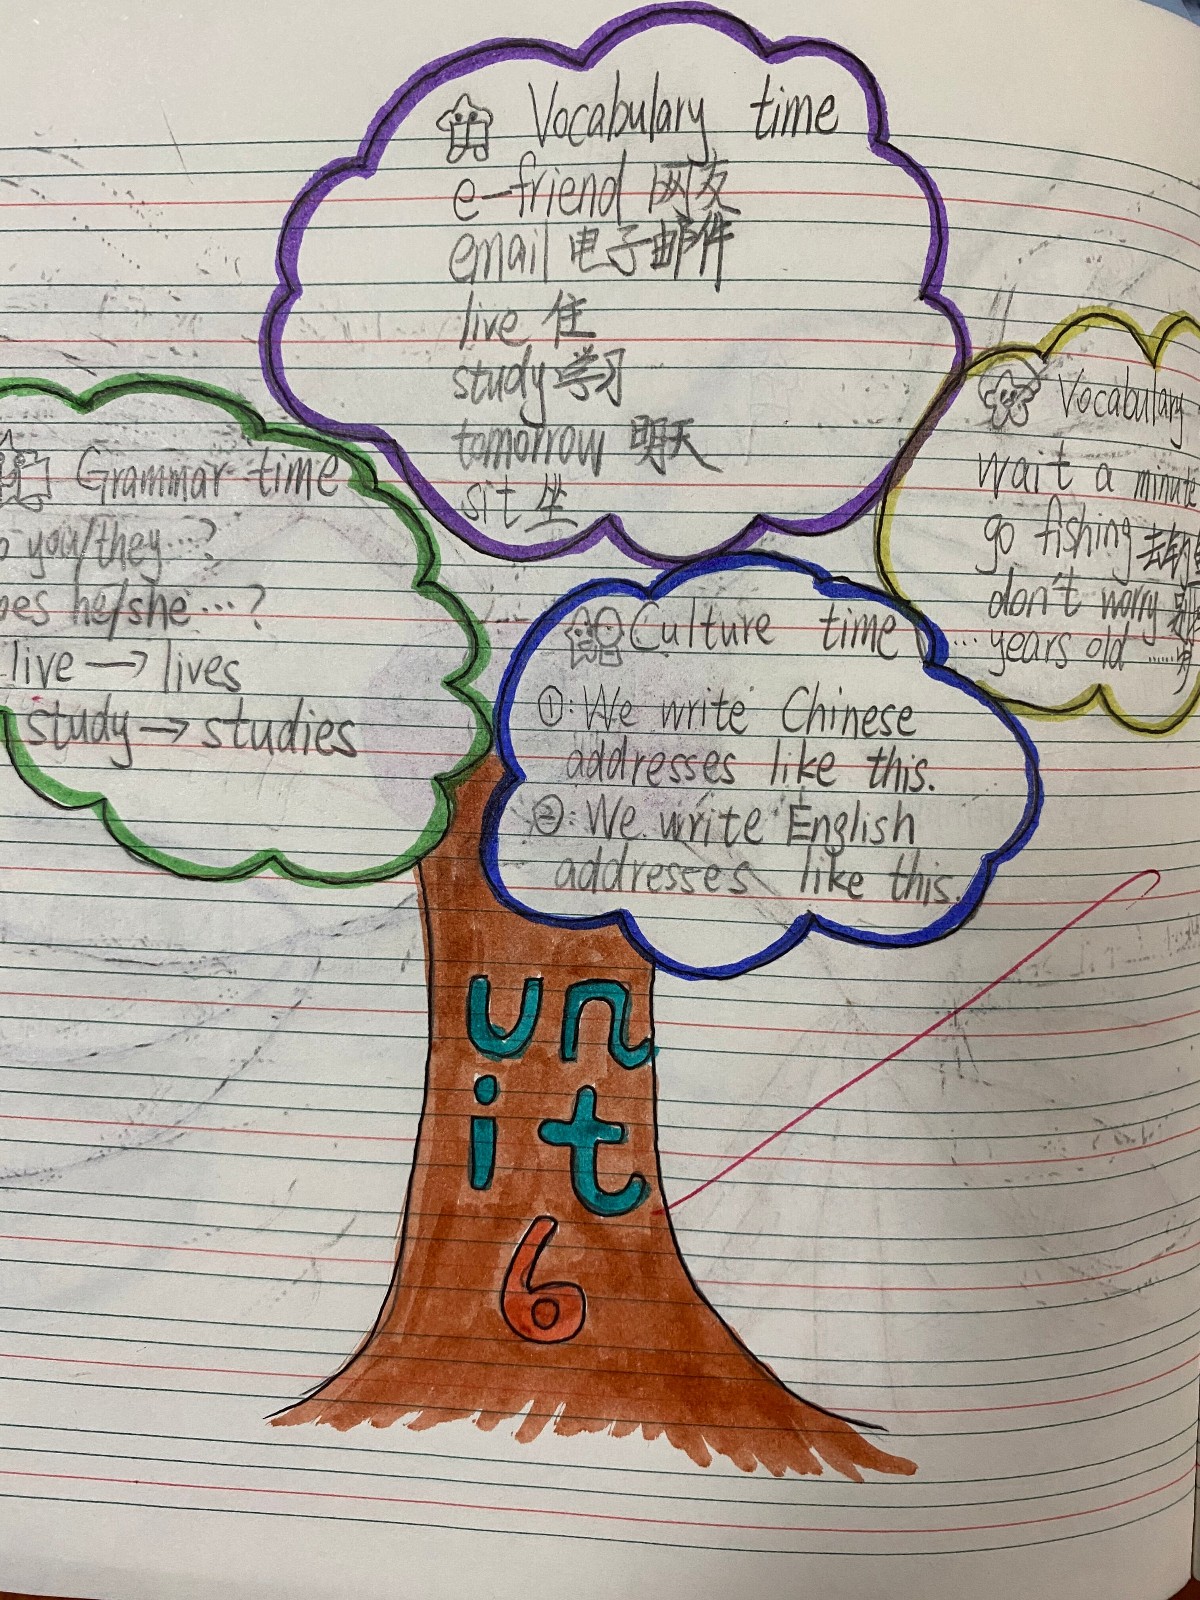 Vocabulary time
e-friend 网友
email 电子邮件
live 住
study 学习
tomorrow 明天
sit 坐
Grammar time
you/they...?
he/she...?
live → lives
study → studies
Culture time
①: We write Chinese
addresses like this.
②: We write English
addresses like this.
Vocabulary
wait a minute
go fishing 去钓
don't worry 别
... years old ......岁
un
it
6